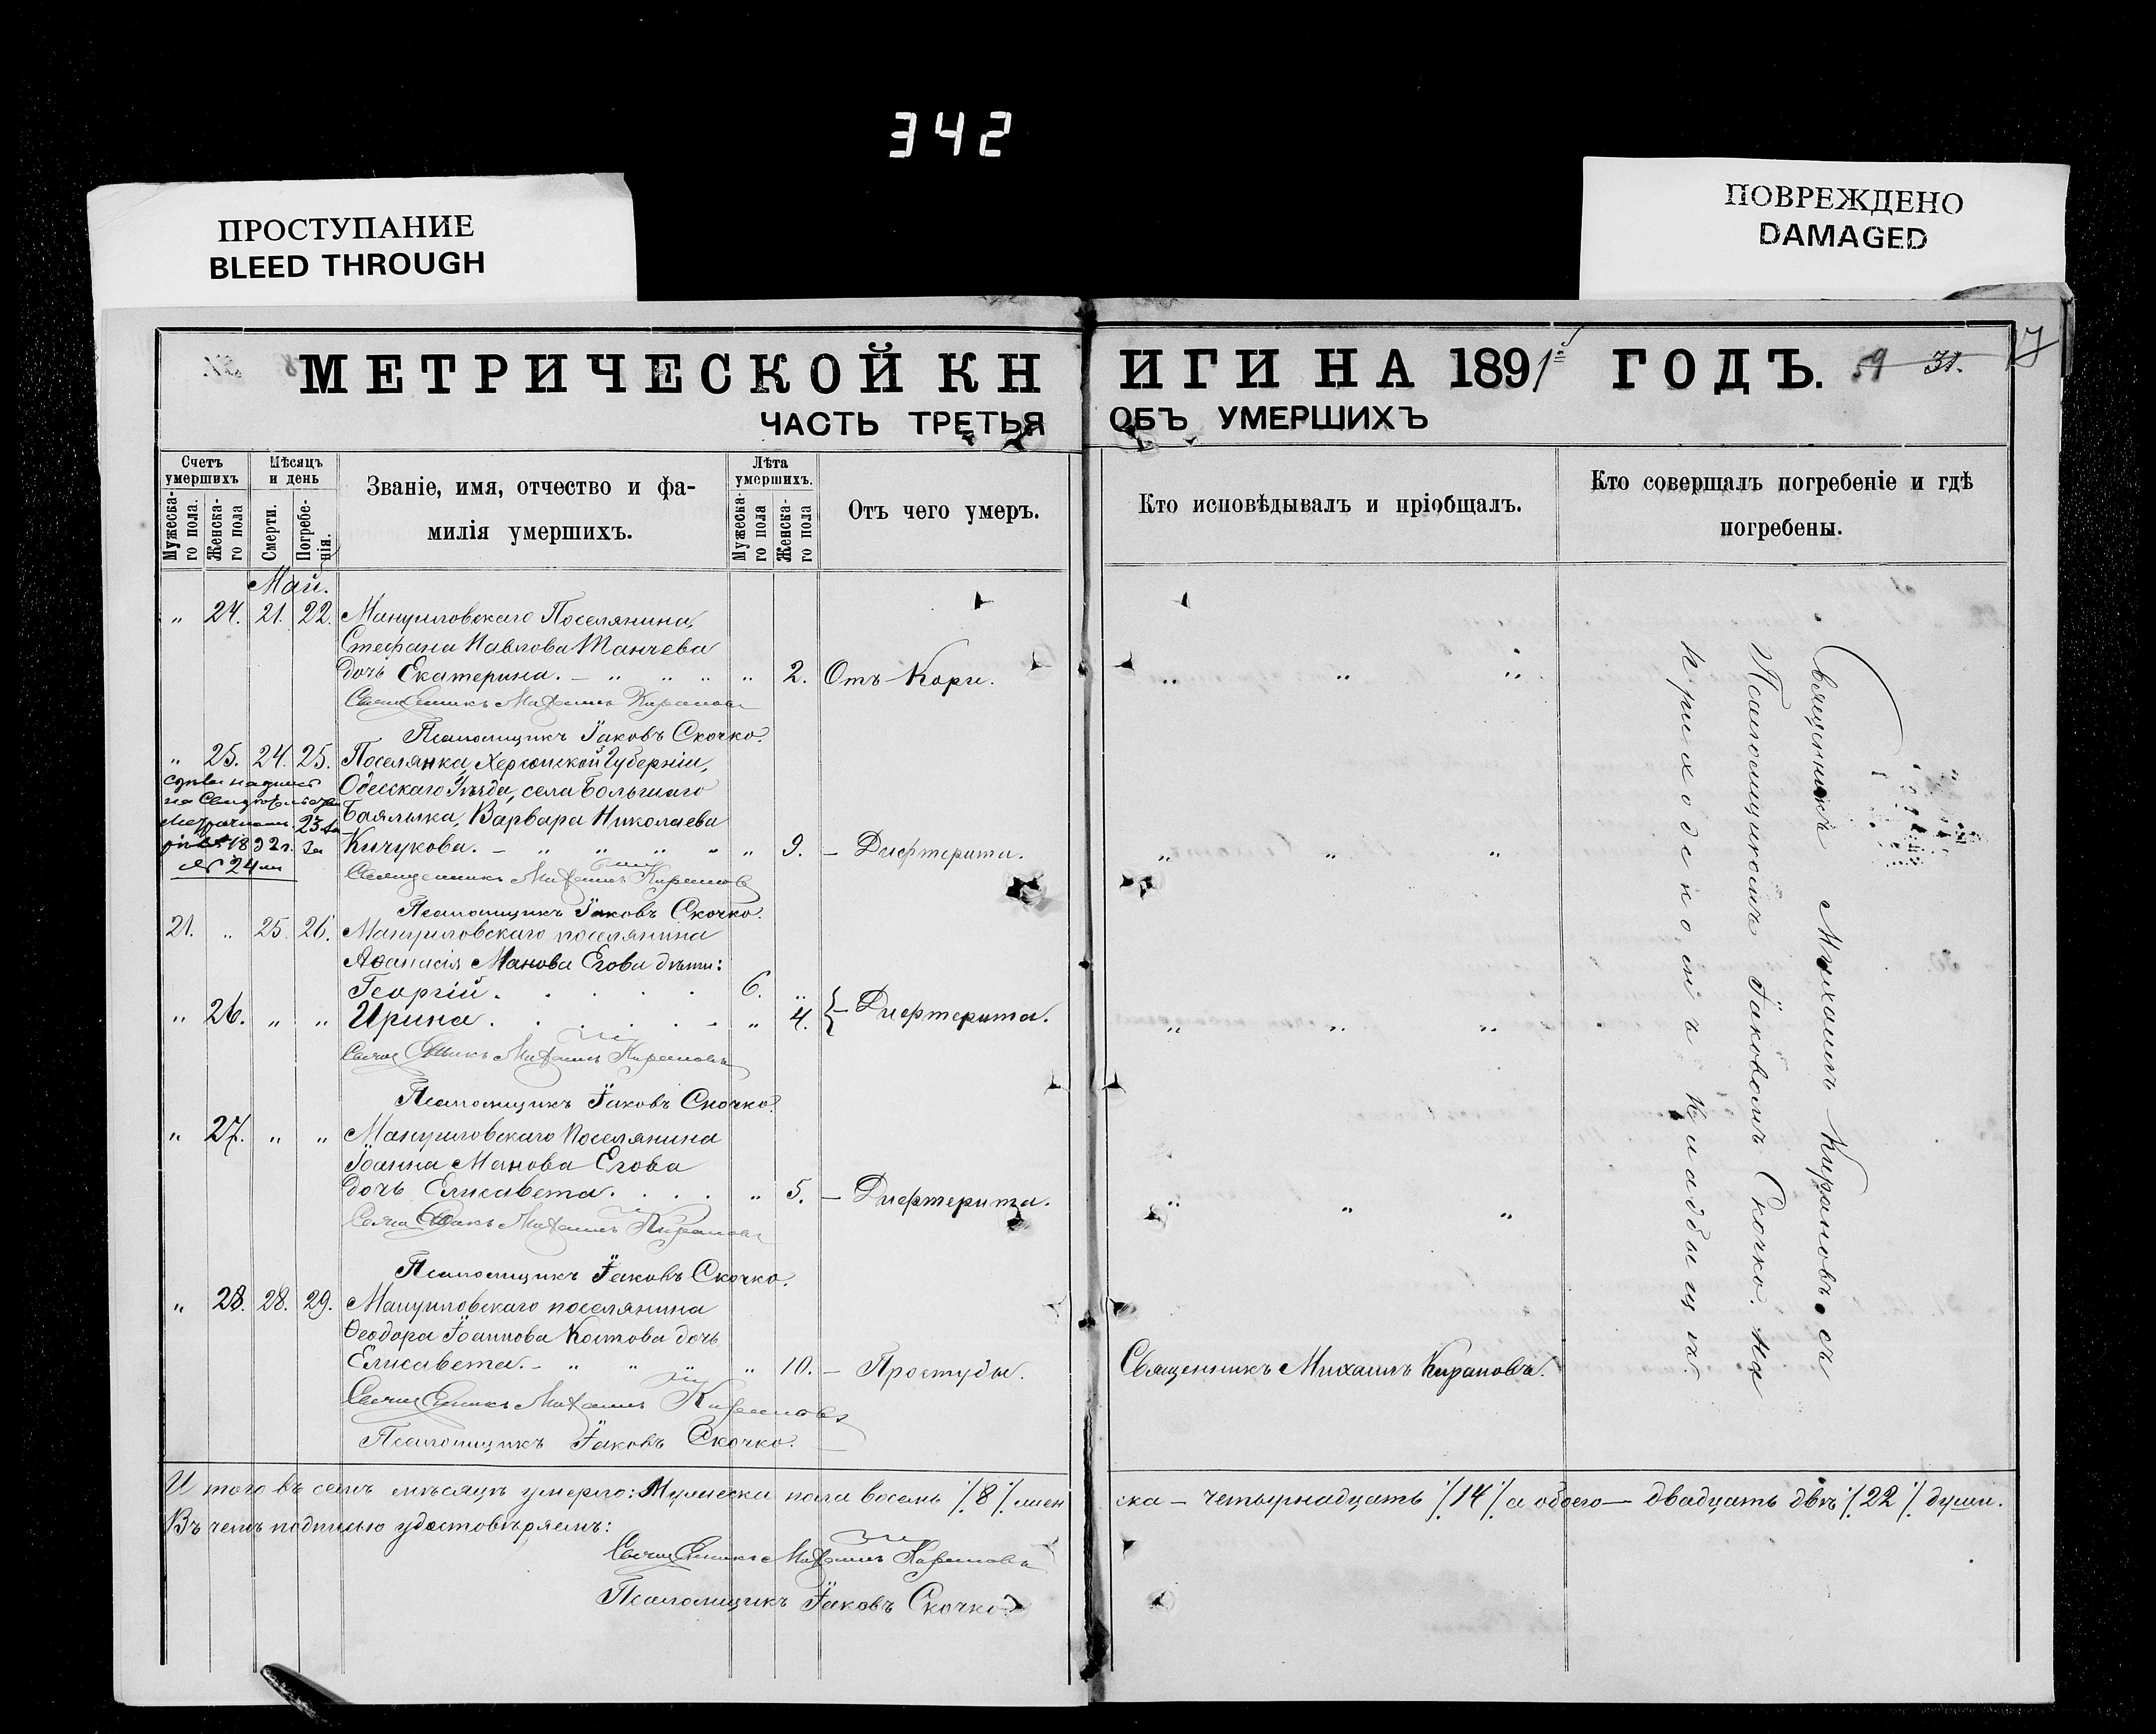 342
ПРОСТУПАНИЕ
BLEED THROUGH
ПОВРЕЖДЕНО
DAMAGED
МЕТРИЧЕСКОЙ КНИГИ НА 1891 ГОДЪ. 59 31. 17
ЧАСТЬ ТРЕТЬЯ ОБЪ УМЕРШИХЪ
Счетъ умершихъ
Мужеска-го пола.
Женска-го пола
Мѣсяцъ и день
Смерти.
Погребе-нія.
Званіе, имя, отчество и фа-
милія умершихъ.
Лѣта умершихъ.
Мужеска-го пола
Женска-го пола
Отъ чего умеръ.
Кто исповѣдывалъ и пріобщалъ.
Кто совершалъ погребеніе и гдѣ
погребены.
Май.
" 24. 21. 22. Мануиловскаго Поселянина,
Стефана Павлова Танчева
дочь Екатерина. – " " " " 2. Отъ Кори. " " "
Священникъ Михаилъ Кирановъ
Псаломщикъ Іаковъ Скочко.
" 25. 24. 25. Поселянка, Херсонской Губерніи,
Одесскаго Уѣзда, села Большаго
Баялыка, Варвара Николаева
Кичукова. – " " " " " 9. – Дифтерита. " " "
1892 г. за
№ 24
Священникъ Михаилъ Кирановъ
Псаломщикъ Іаковъ Скочко.
21. " 25. 26. Мануиловскаго поселянина
Аѳанасія Манова Егова дѣти:
Георгій. 6. "
" 26. " " Ирина. " 4. } – Дифтерита. " " "
Священникъ Михаилъ Кирановъ
Псаломщикъ Іаковъ Скочко.
" 27. " " Мануиловскаго Поселянина
Іоанна Манова Егова
дочь Елисавета. " 5. – Дифтерита. " " "
Священникъ Михаилъ Кирановъ
Псаломщикъ Іаковъ Скочко.
" 28. 28. 29. Мануиловскаго поселянина
Ѳеодора Іоаннова Костова дочь
Елисавета. – " " " " 10. – Простуды. Священникъ Михаилъ Кирановъ.
Священникъ Михаилъ Кирановъ
Псаломщикъ Іаковъ Скочко.
Священникъ Михаилъ Кирановъ съ
Псаломщикомъ Іаковомъ Скочко. на
приходскомъ кладбищѣ.
И того въ семъ мѣсяцѣ умерло: Мужеска пола восемь /8/ женска – четырнадцать /14/ а обоего – двадцать двѣ /22/ души.
Въ чемъ подписью удостовѣряемъ:
Священникъ Михаилъ Кирановъ
Псаломщикъ Іаковъ Скочко